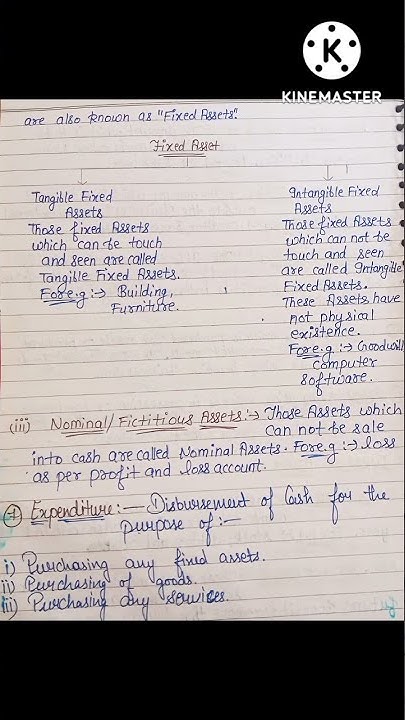 K
KINEMASTER
are also known as "Fixed Assets".
Fixed Asset
Tangible Fixed
Assets
Those fixed Assets
which can be touch
and seen are called
Tangible Fixed Assets.
For e.g :→ Building,
Furniture.
Intangible Fixed
Assets
Those fixed Assets
which can not be
touch and seen
are called Intangible
Fixed Assets.
These Assets have
not physical
existence.
For e.g :→ Goodwill
computer
software.
(iii) Nominal/Fictitious Assets :→ Those Assets which
can not be sale
into cash are called Nominal Assets. For e.g :→ loss
as per profit and loss account.
Expenditure :— Disbursement of Cash for the
purpose of :—
i) Purchasing any fixed assets.
ii) Purchasing of goods.
iii) Purchasing any services.